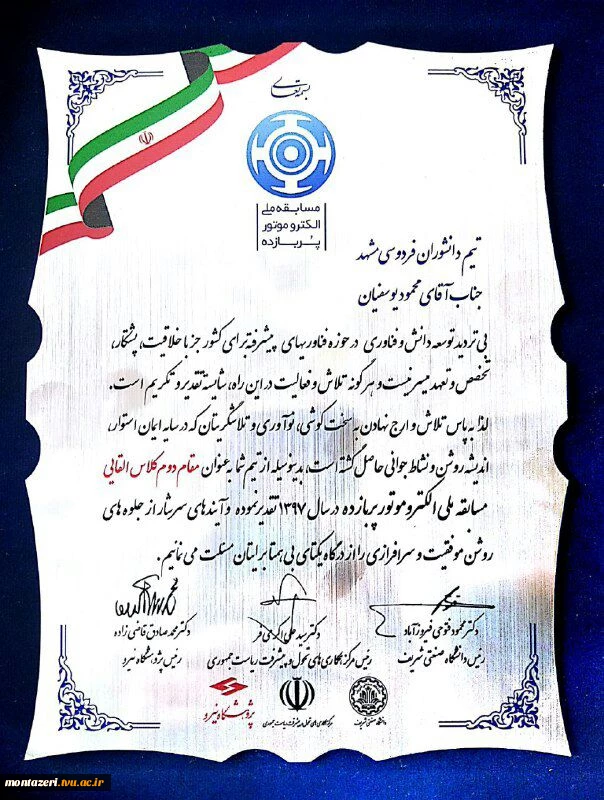 بسمه تعالی
مسابقه ملی
الکتروموتور
پُربازده
تیم دانشوران فردوسی مشهد
جناب آقای محمود یوسفیان
بی تردید توسعه دانش و فناوری در حوزه فناوریهای پیشرفته برای کشور جز با خلاقیت، پشتکار،
تخصص و تعهد میسر نیست و هرگونه تلاش و فعالیت در این راه، شایسته تقدیر و تکریم است.
لذا به پاس تلاش و ارج نهادن به سخت کوشی، نوآوری و تلاشگریتان که در سایه ایمان استوار،
اندیشه روشن و نشاط جوانی حاصل گشته است، بدینوسیله از تیم شما به عنوان مقام دوم کلاس القایی
مسابقه ملی الکتروموتور پربازده در سال ۱۳۹۷ تقدیر نموده و آیندهای سرشار از جلوه های
روشن موفقیت و سرافرازی را از درگاه یکتای بی همتا برایتان مسئلت می نمائیم.
دکتر محمود فتوحی فیروزآباد
رئیس دانشگاه صنعتی شریف
دکتر سید علی اکرمی فر
رئیس مرکز همکاری های تحول و پیشرفت ریاست جمهوری
دکتر محمد صادق قاضی زاده
رئیس پژوهشگاه نیرو
دانشگاه صنعتی شریف
مرکز همکاری های تحول و پیشرفت ریاست جمهوری
پژوهشگاه نیرو
montazeri.tvu.ac.ir